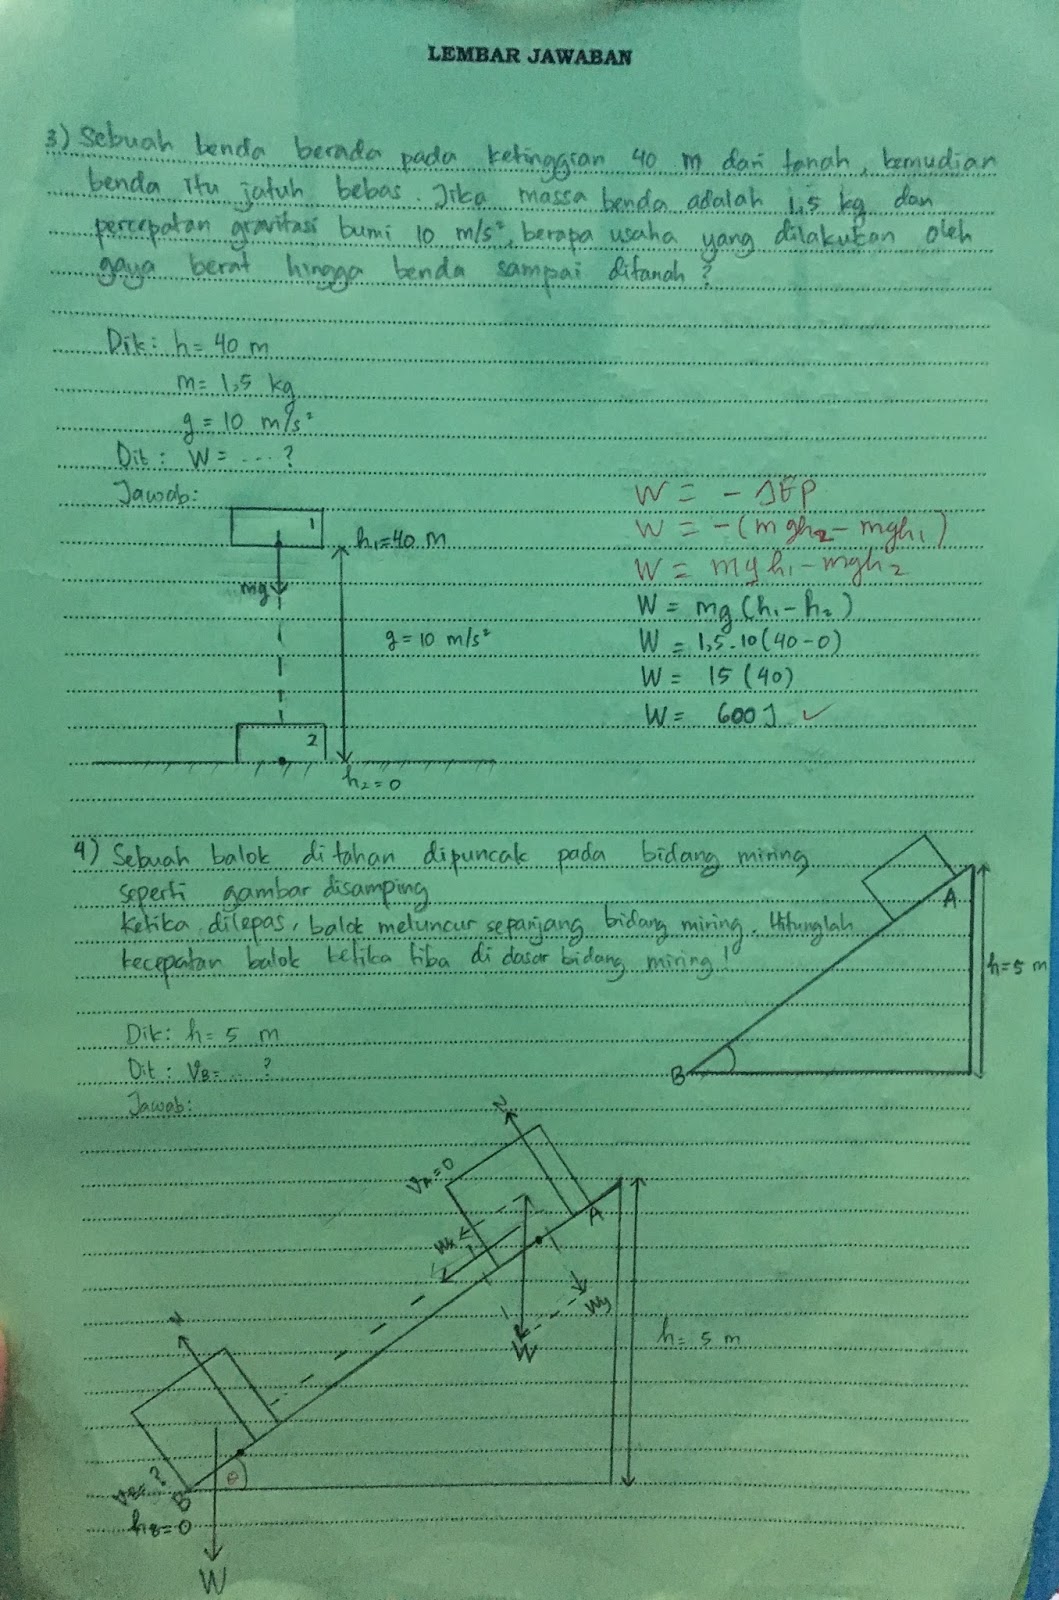 LEMBAR JAWABAN
3) Sebuah benda berada pada ketinggian 40 m dari tanah, kemudian
benda itu jatuh bebas. Jika massa benda adalah 1,5 kg dan
percepatan gravitasi bumi 10 m/s², berapa usaha yang dilakukan oleh
gaya berat hingga benda sampai ditanah?
Dik: h = 40 m
m = 1,5 kg
g = 10 m/s²
Dit: W = ....?
Jawab:
1
h₁=40 m
mg
g = 10 m/s²
2
h₂=0
W = - ΔEP
W = -(mgh₂ - mgh₁)
W = mgh₁ - mgh₂
W = mg (h₁ - h₂)
W = 1,5 . 10 (40-0)
W = 15 (40)
W = 600 J ✓
4) Sebuah balok ditahan dipuncak pada bidang miring
seperti gambar disamping
Ketika dilepas, balok meluncur sepanjang bidang miring. Hitunglah
kecepatan balok ketika tiba di dasar bidang miring!
A
h = 5 m
B
Dik: h = 5 m
Dit: VB = ....?
Jawab:
N
VA = 0
A
Wx
Wy
W
h = 5 m
N
θ
VB = ?
B
hB = 0
W